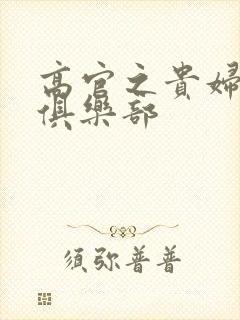 高官之貴婦
俱樂部
須弥普普